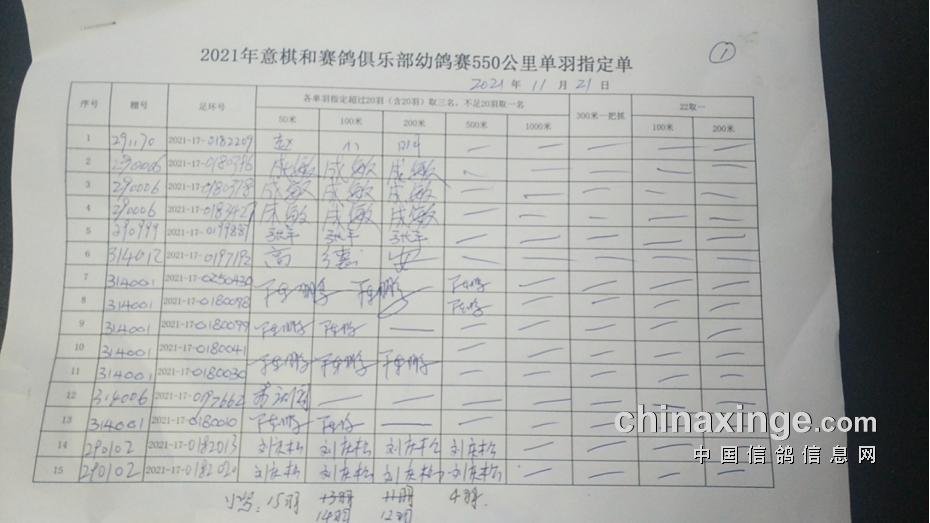 ①
2021年意棋和赛鸽俱乐部幼鸽赛550公里单羽指定单
2021 年 11 月 21 日
序号 棚号 足环号 各单羽指定超过20羽（含20羽）取三名，不足20羽取一名 300米一把抓 22取一
50米 100米 200米 500米 1000米 100米 200米
1 291170 2021-17-0182209 赵 小 明 — — — — —
2 290006 2021-17-0180396 成敏 成敏 成敏 — — — — —
3 290006 2021-17-0180378 成敏 成敏 成敏 — — — — —
4 290006 2021-17-0183427 成敏 成敏 成敏 — — — — —
5 290999 2021-17-0199889 张军 张军 张军 — — — — —
6 314012 2021-17-0197193 高 德 安 — — — — —
7 314001 2021-17-0250430 — — — —
8 314001 2021-17-0180098 — — — —
9 314001 2021-17-0180099 — — — — —
10 314001 2021-17-0180041 — — — —
11 314001 2021-17-0180030 — — — — —
12 314006 2021-17-0197662 — — — — — — —
13 314001 2021-17-0180010 — — — — —
14 290102 2021-17-0182013 刘庆松 刘庆松 刘庆松 刘庆松 — — — —
15 290102 2021-17-0182020 刘庆松 刘庆松 刘庆松 刘庆松 — — — —
小号：15羽 13羽 11羽 4羽
14羽 12羽
chinaxinge.com
中国信鸽信息网